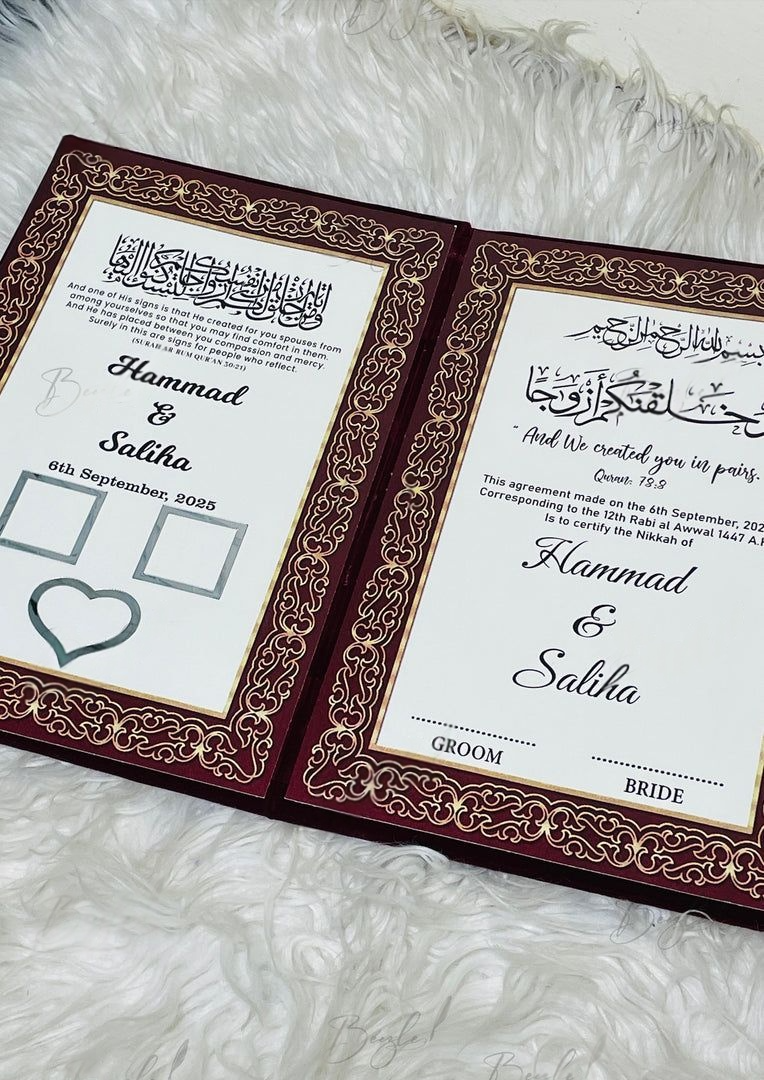 ومن آياته أن خلق لكم من أنفسكم أزواجا لتسكنوا إليها
And one of His signs is that He created for you spouses from
among yourselves so that you may find comfort in them.
And He has placed between you compassion and mercy.
Surely in this are signs for people who reflect.
(SURAH AR RUM QUR'AN 30:21)
Hammad
&
Saliha
6th September, 2025
بسم الله الرحمن الرحيم
وَخَلَقْنَٰكُمْ أَزْوَٰجًا
" And We created you in pairs.
Quran: 78:8
This agreement made on the 6th September, 202
Corresponding to the 12th Rabi al Awwal 1447 A.H
Is to certify the Nikkah of
Hammad
&
Saliha
GROOM
BRIDE
Beezle!